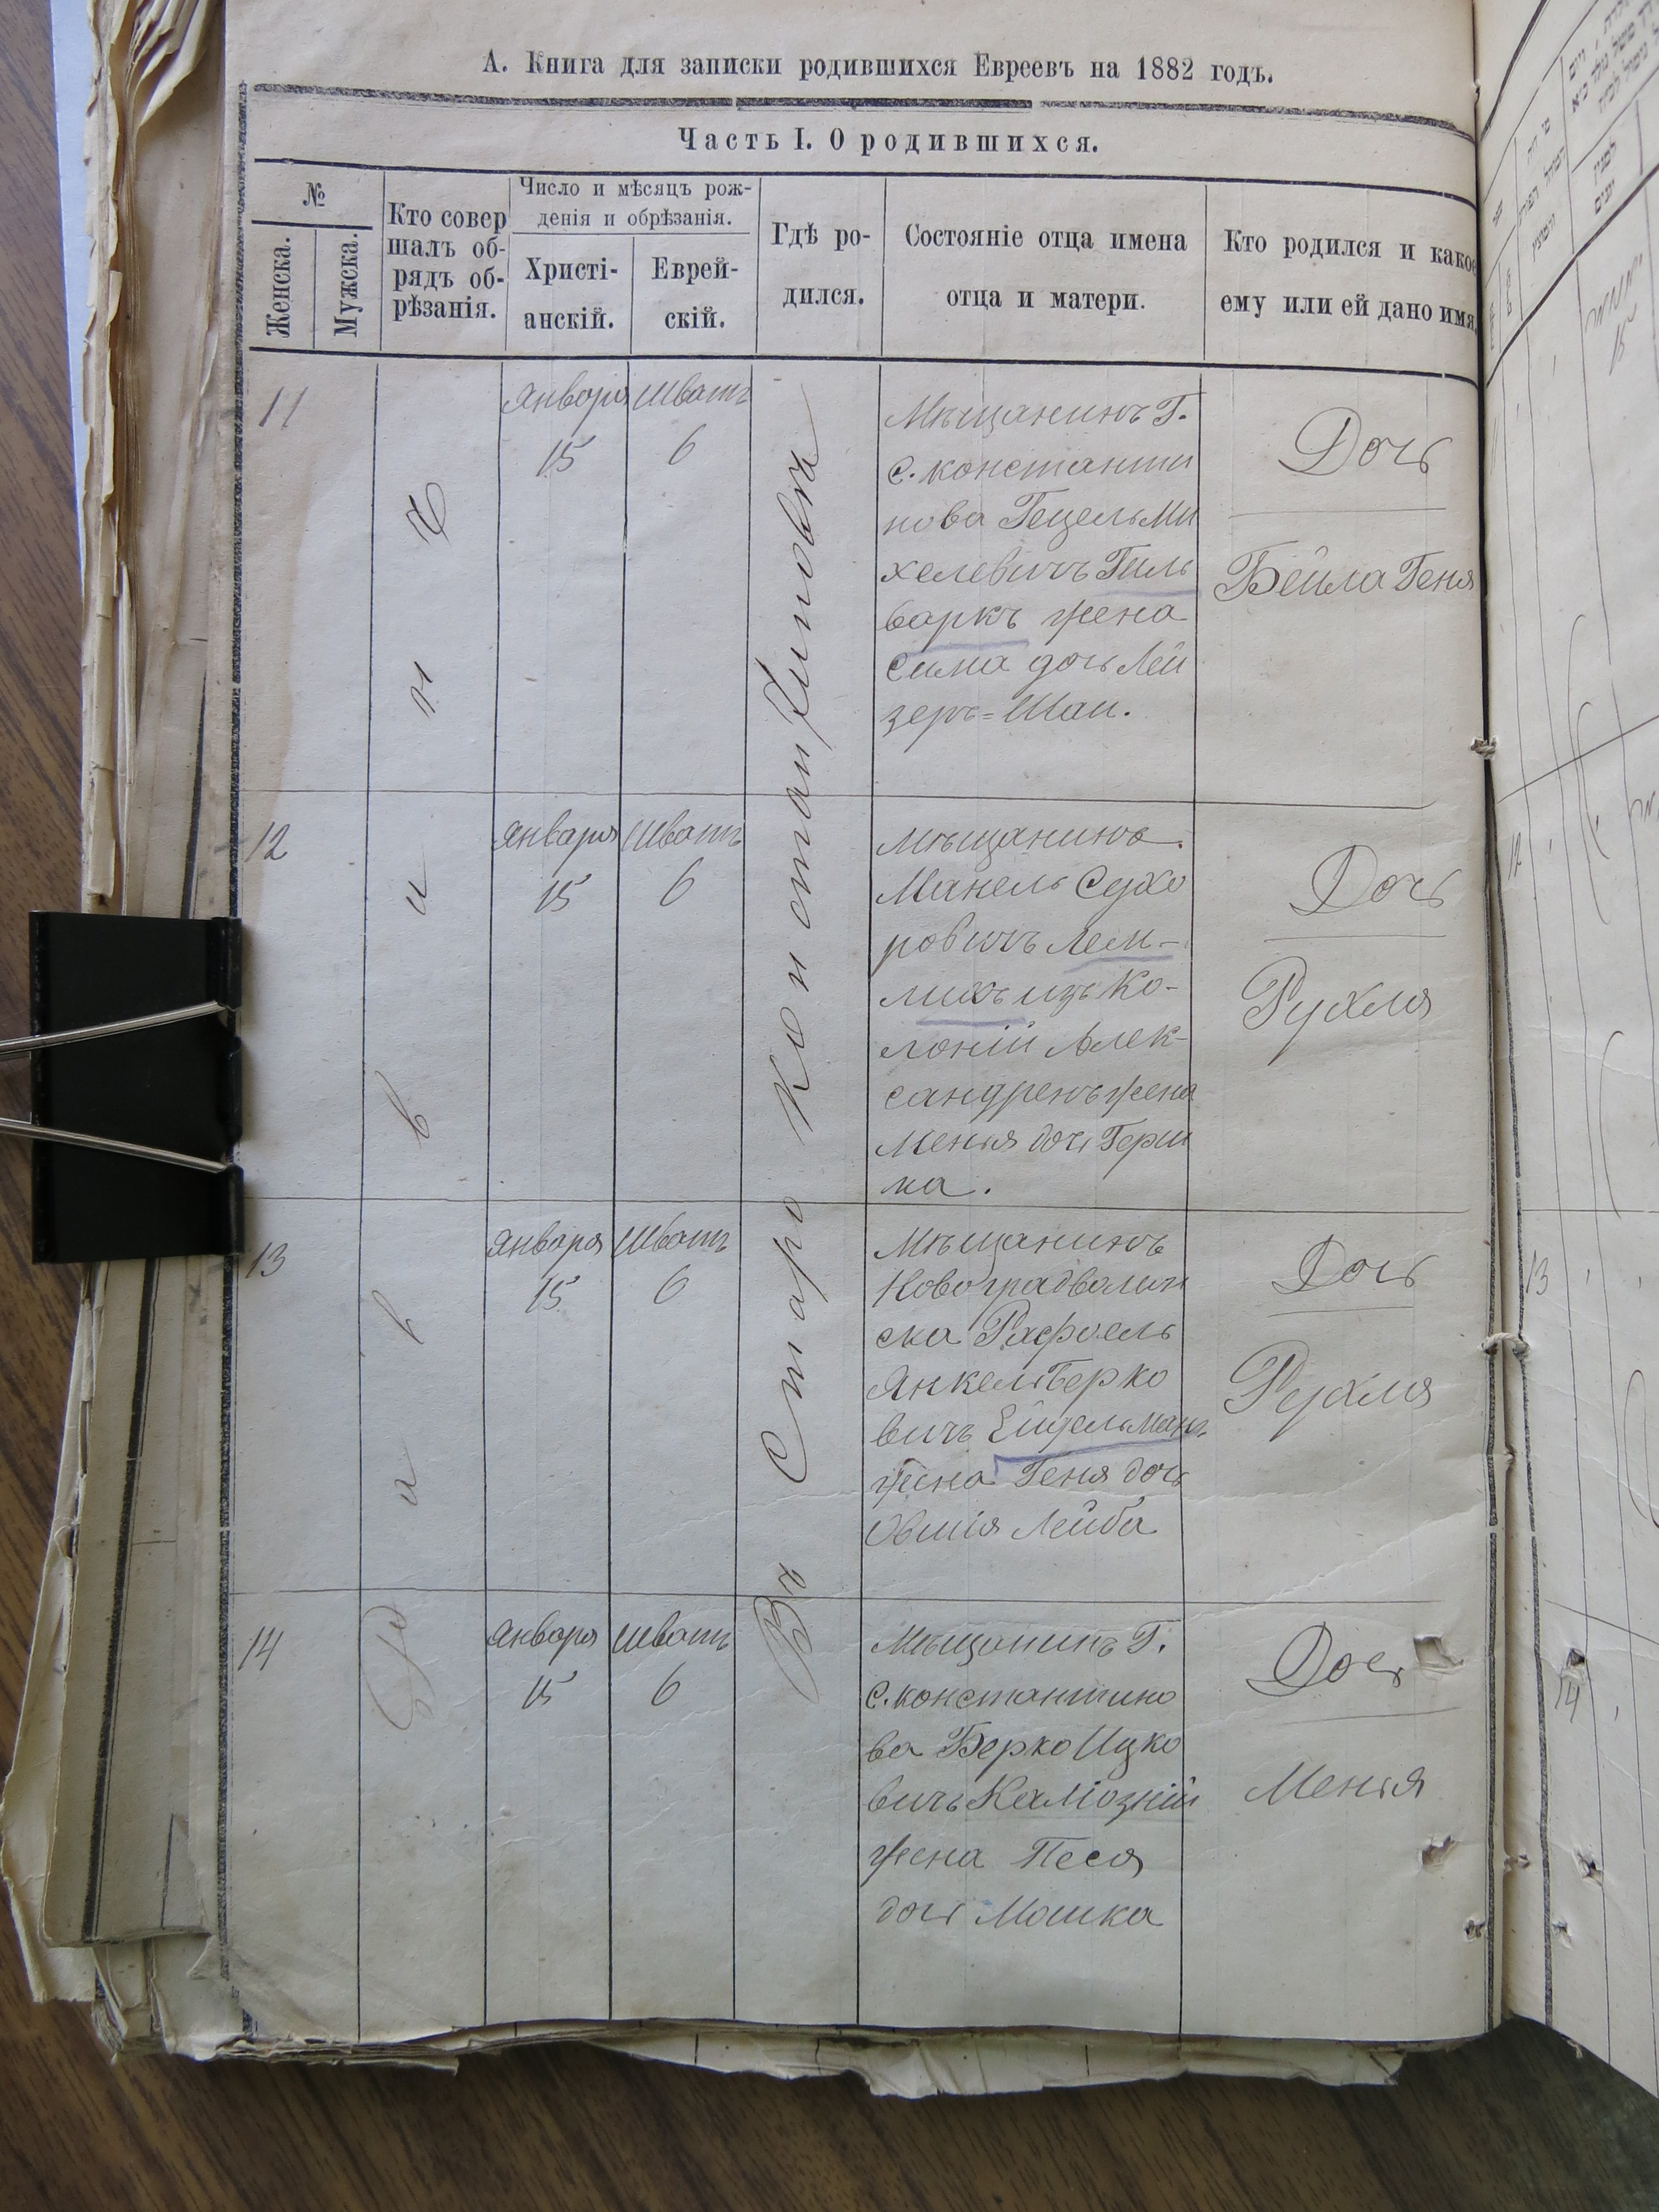 А. Книга для записки родившихся Евреевъ на 1882 годъ.
Часть I. О родившихся.
№
Женска.
Мужска.
Кто совер
шалъ об-
рядъ об-
рѣзанія.
Число и мѣсяцъ рож-
денія и обрѣзанія.
Христі-
анскій.
Еврей-
скій.
Гдѣ ро-
дился.
Состояніе отца имена
отца и матери.
Кто родился и какое
ему или ей дано имя.
Въ Старо Константиновѣ
11
Января
15
Шватъ
6
Мѣщанинъ Г.
С. константи
нова Гецель Ми
хелевичъ Гиль
варкъ жена
Сима дочь Лей
зеръ=Шаи.
Дочь
Бейла Геня
12
Января
15
Шватъ
6
Мѣщанинъ.
Манель Сухо
ровичъ Лем-
лихъ изъ Ко-
лоній Алек-
сандренъ жена
Менья дочь Герш
ка.
Дочь
Рухля
13
Января
15
Шватъ
6
Мѣщанинъ
Новоградволын
ска Рафоель
Янкель Берко
вичъ Ейдельманъ
жена Геня дочь
Овшія Лейба
Дочь
Рухля
14
Января
15
Шватъ
6
Мѣщанинъ Г.
С. константино
ва Берко Ицко
вичъ Каліозній
жена Песя
дочь Мошка
Дочь
Менья
12
13
14